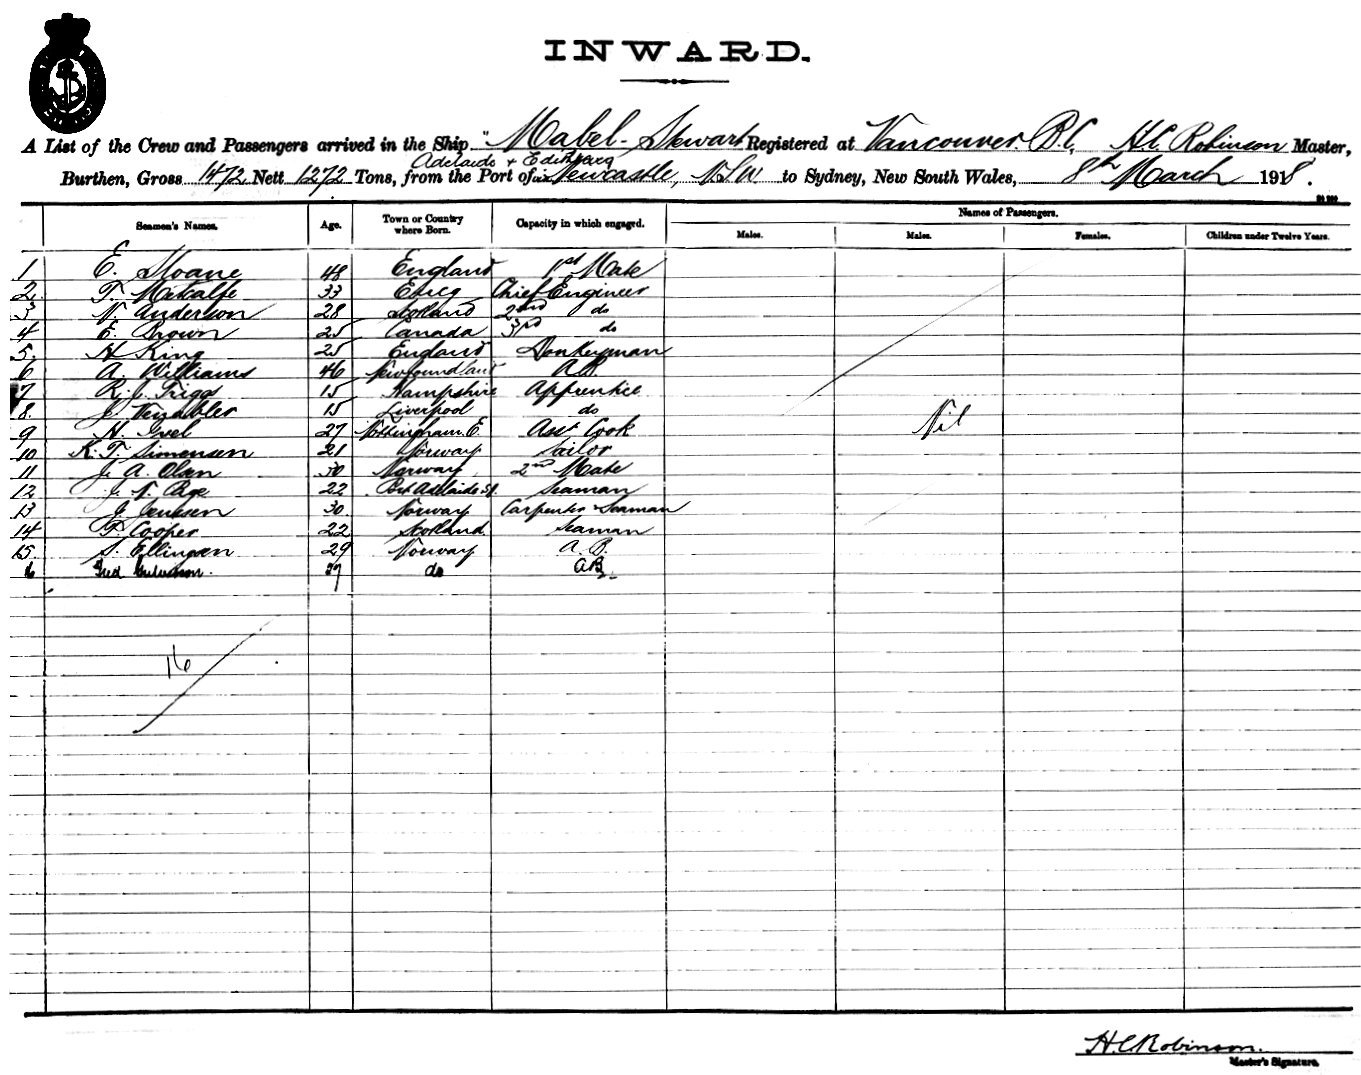 INWARD.
A List of the Crew and Passengers arrived in the Ship "Mabel Stewart Registered at Vancouver B.C. H.C. Robinson Master,
Adelaide + Edithburg
Burthen, Gross 1472 Nett 1272 Tons, from the Port of Newcastle, NSW to Sydney, New South Wales, 8th March 1918.
Seamen's Names. Age. Town or Country where Born. Capacity in which engaged. Names of Passengers.
Males. Males. Females. Children under Twelve Years.
1 E. Sloane 48 England 1st Mate
2 T. Metcalfe 33 Chief Engineer
3 N Anderson 28 Scotland 2nd do
4 E. Brown 25 Canada 3rd do
5. H King 25 England Donkeyman
6 A. Williams 46 Newfoundland A.B.
7 R. J. Trigg 15 Hampshire Apprentice
8. J. Venables 15 Liverpool do
9 H. 27 Nottingham. E Asst Cook Nil
10 K. T. Simensen 21 Norway Sailor
11 J. A. Olsen 30 Norway 2nd Mate
12 J. N. Page 22 Port Adelaide SA Seaman
13 J. Jenssen 30. Norway Carpenter + Seaman
14 F. Cooper 22 Scotland Seaman
15. S. Ellingsen 29 Norway A.B.
16 Fred 27 do AB.
16
H.C. Robinson.
Master's Signature.